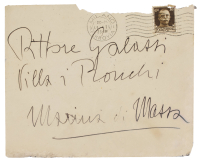 Pittore Galassi
Villa i Ronchi
Marina di Massa